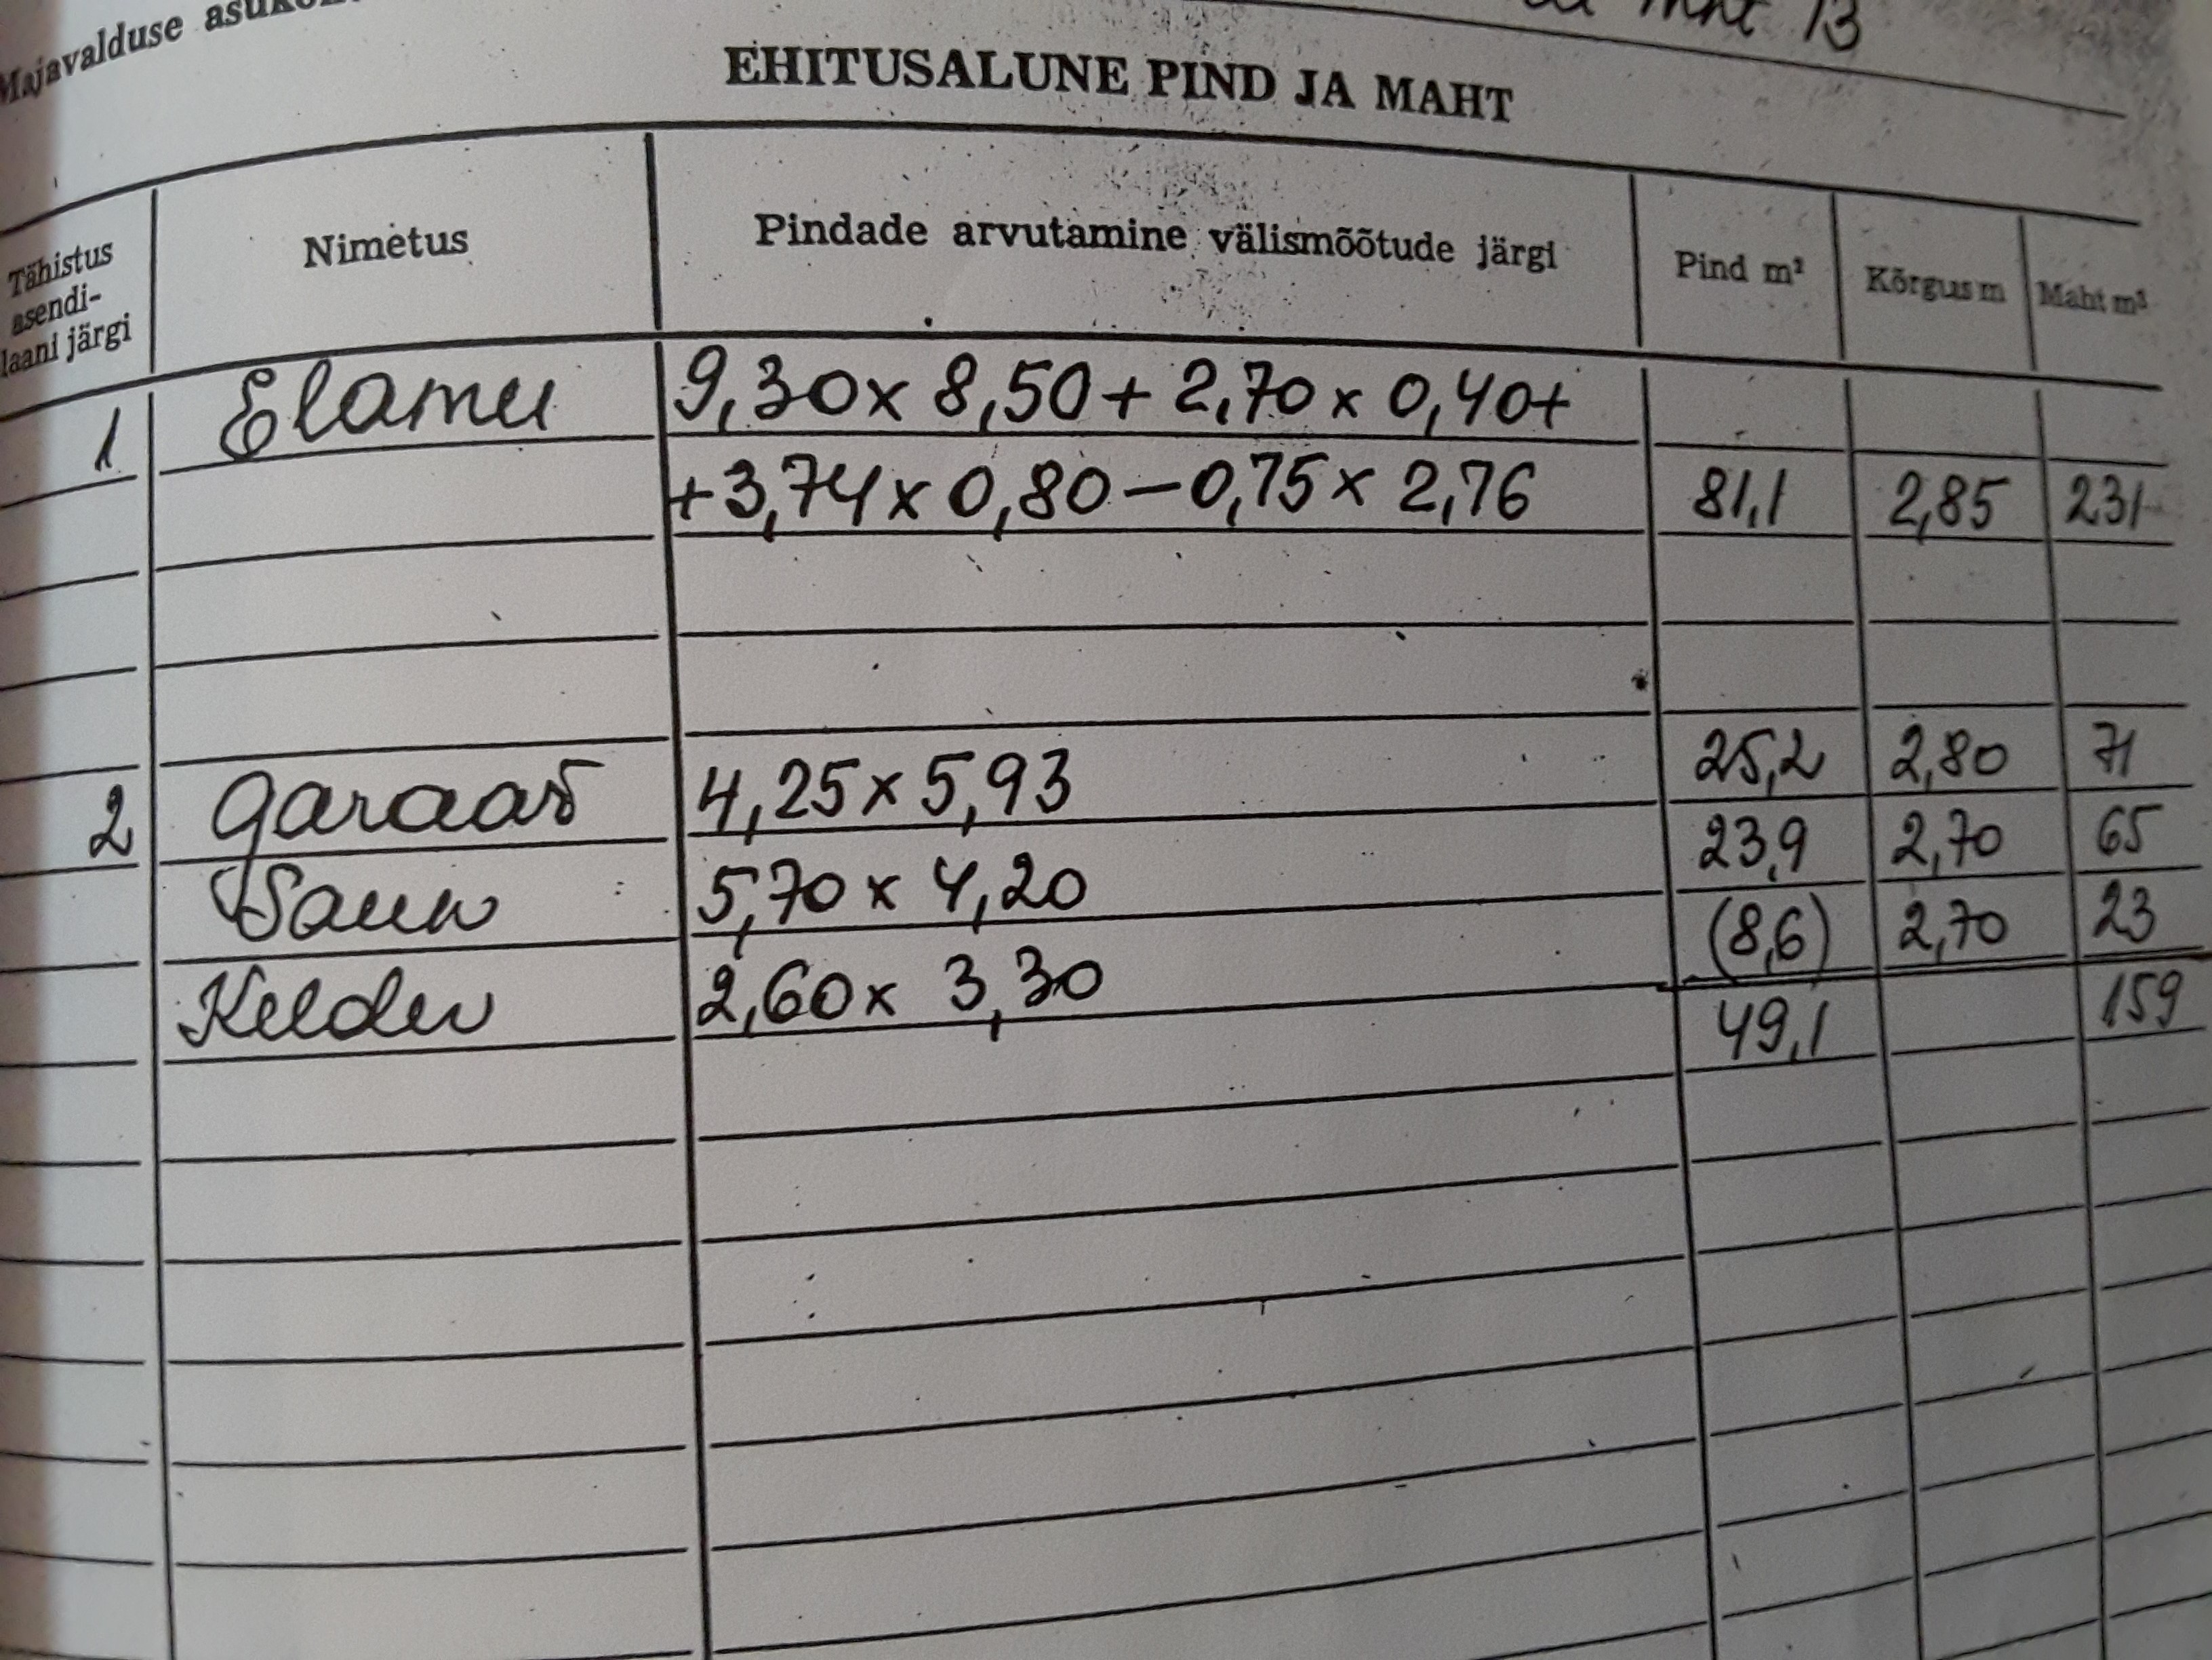 Majavalduse
mnt 13
EHITUSALUNE PIND JA MAHT
Tähistus
asendi-
laani järgi
Nimetus
Pindade arvutamine välismõõtude järgi
Pind m²
Kõrgus m
Maht m³
1 Elamu 9,30x 8,50+ 2,70 x 0,40+
+3,74 x 0,80 — 0,75 x 2,76 81,1 2,85 231
2 Garaaž 4,25 x 5,93 25,2 2,80 71
Saun 5,70 x 4,20 23,9 2,70 65
Kelder 2,60x 3,30 (8,6) 2,70 23
49,1 159